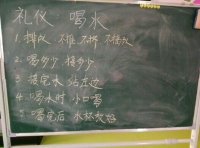 礼仪 喝水
1 排队 不推 不挤 不插队
2. 喝多少 接多少
3 接完水 站在边
4 喝水时 小口喝
5 喝完后 水杯放好